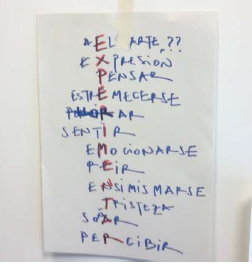 ¿EL ARTE ??
EXPRESION
PENSAR
ESTREMECERSE
SENTIR
EMOCIONARSE
REIR
ENSIMISMARSE
TRISTEZA
SOÑAR
PERCIBIR